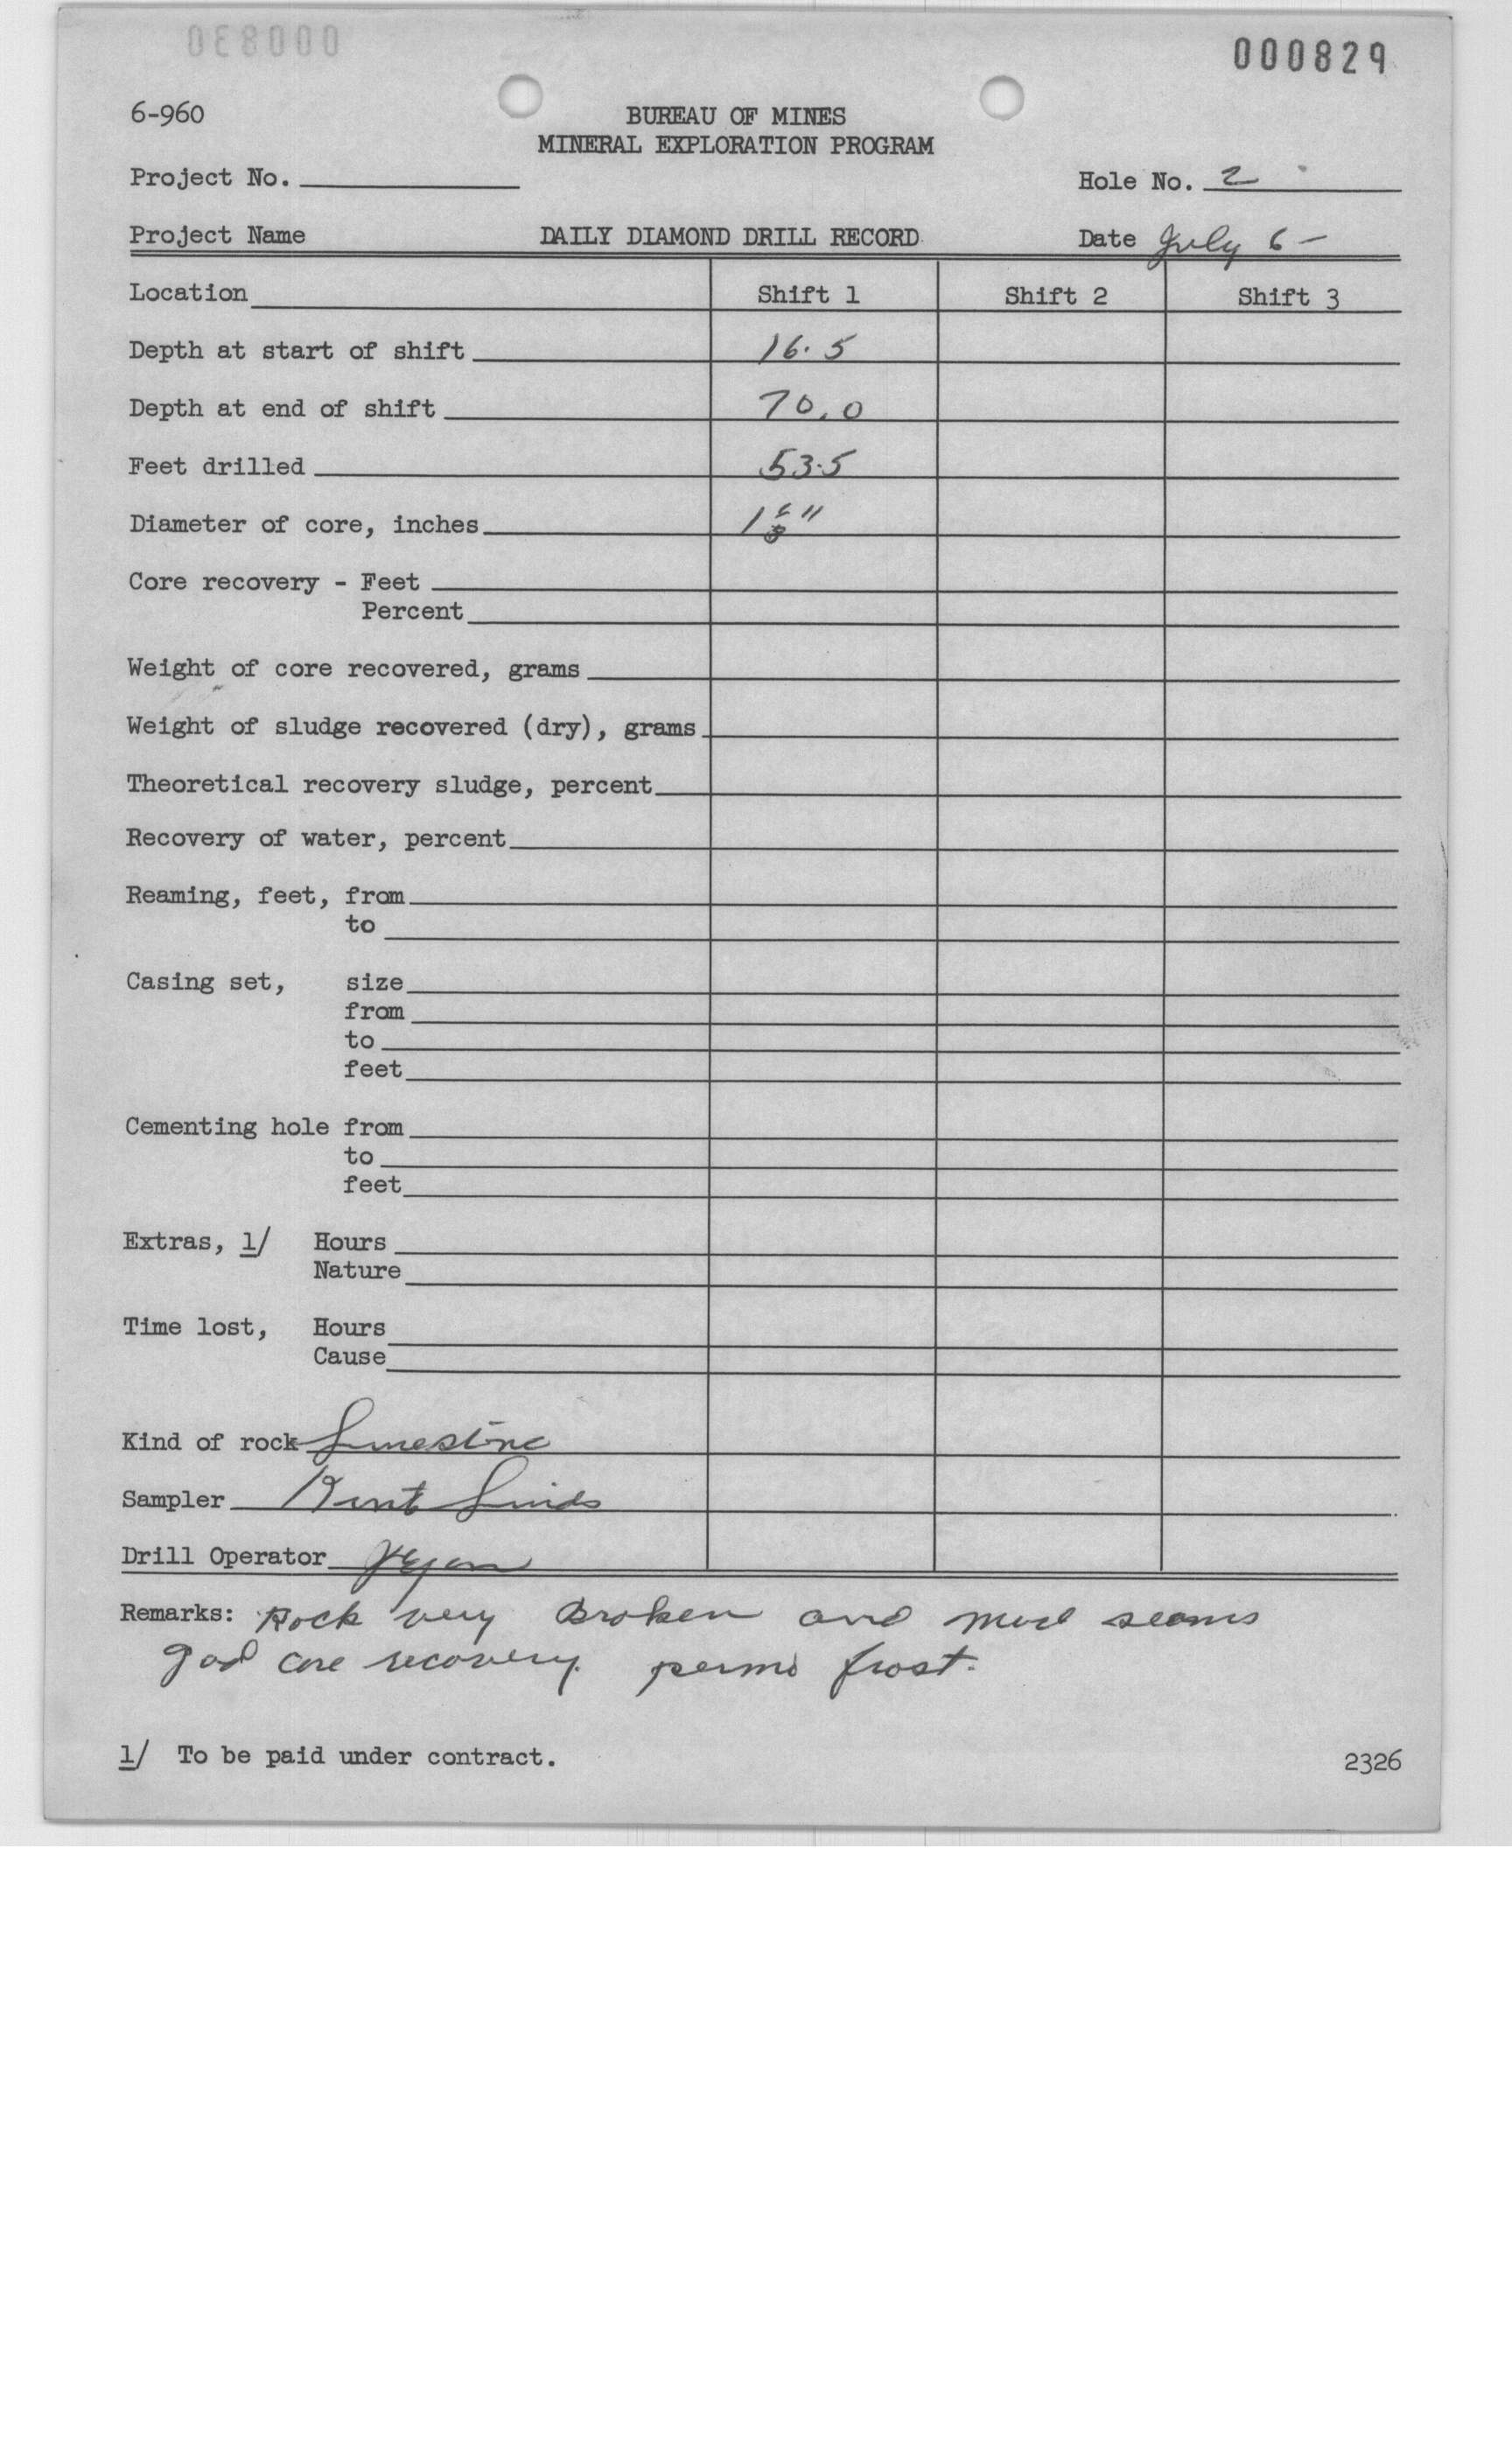 000829
6-960
BUREAU OF MINES
MINERAL EXPLORATION PROGRAM
Project No. Hole No. 2
Project Name DAILY DIAMOND DRILL RECORD Date July 6-
Location Shift 1 Shift 2 Shift 3
Depth at start of shift 16.5
Depth at end of shift 70.0
Feet drilled 53.5
Diameter of core, inches
Core recovery - Feet
Percent
Weight of core recovered, grams
Weight of sludge recovered (dry), grams
Theoretical recovery sludge, percent
Recovery of water, percent
Reaming, feet, from
to
Casing set, size
from
to
feet
Cementing hole from
to
feet
Extras, 1/ Hours
Nature
Time lost, Hours
Cause
Kind of rock Limestone
Sampler
Drill Operator
Remarks: Rock very Broken and mud seams
good core recovery. perma frost.
1/ To be paid under contract. 2326